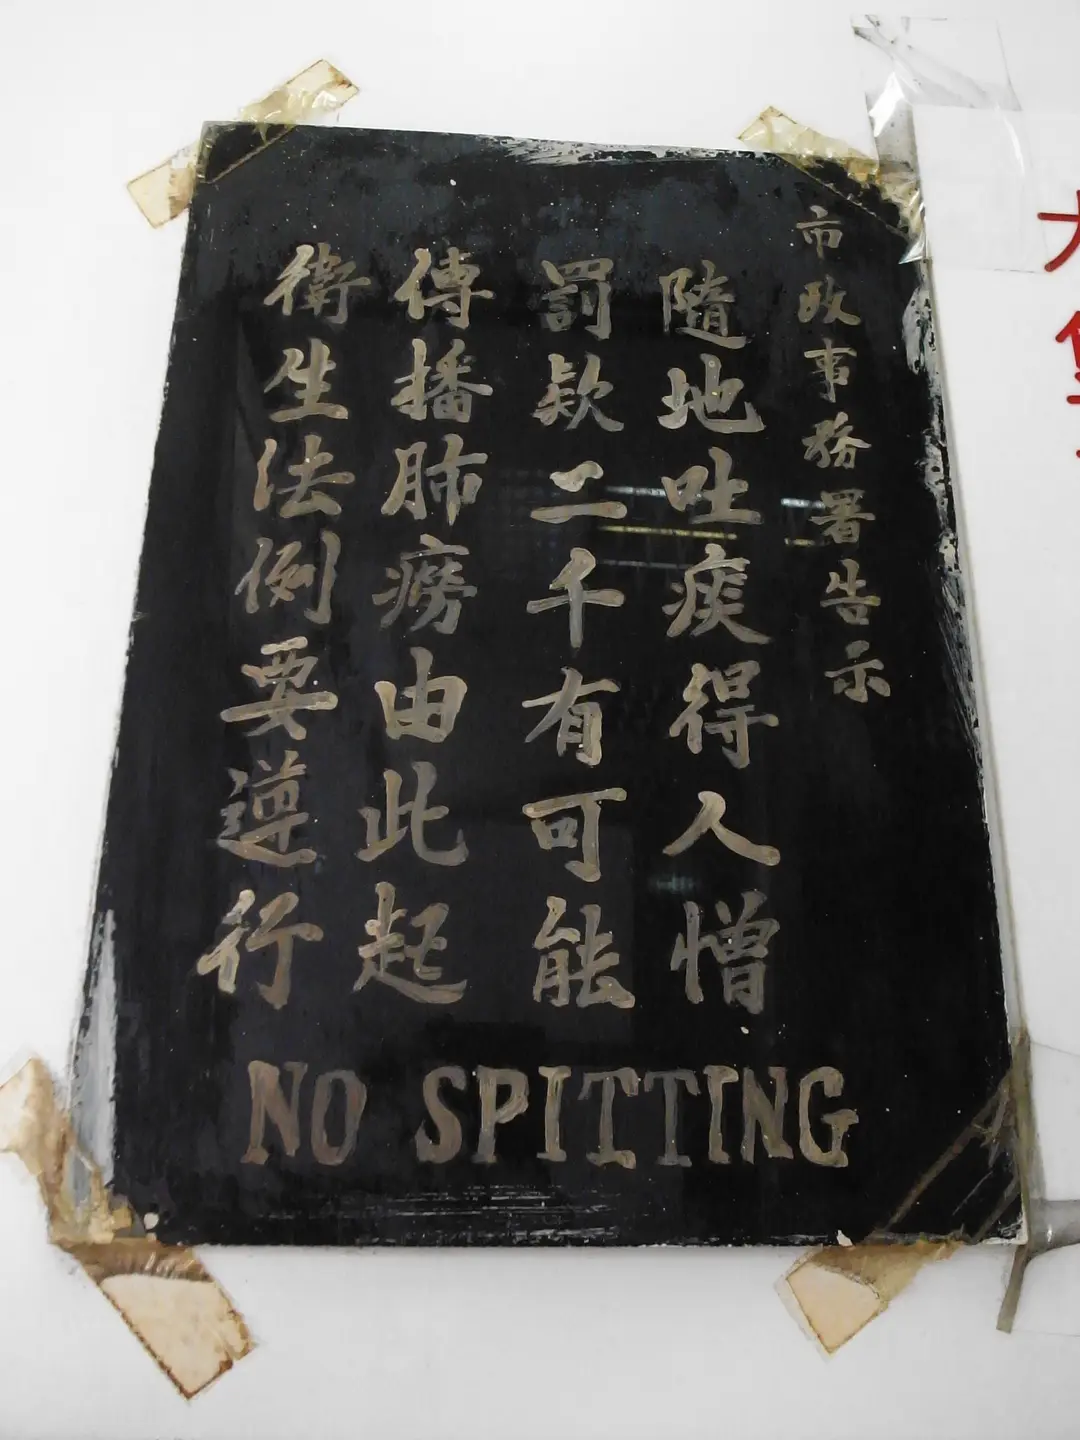 市政事務署告示
隨地吐痰得人憎
罰款二千有可能
傳播肺癆由此起
衛生法例要遵行
NO SPITTING